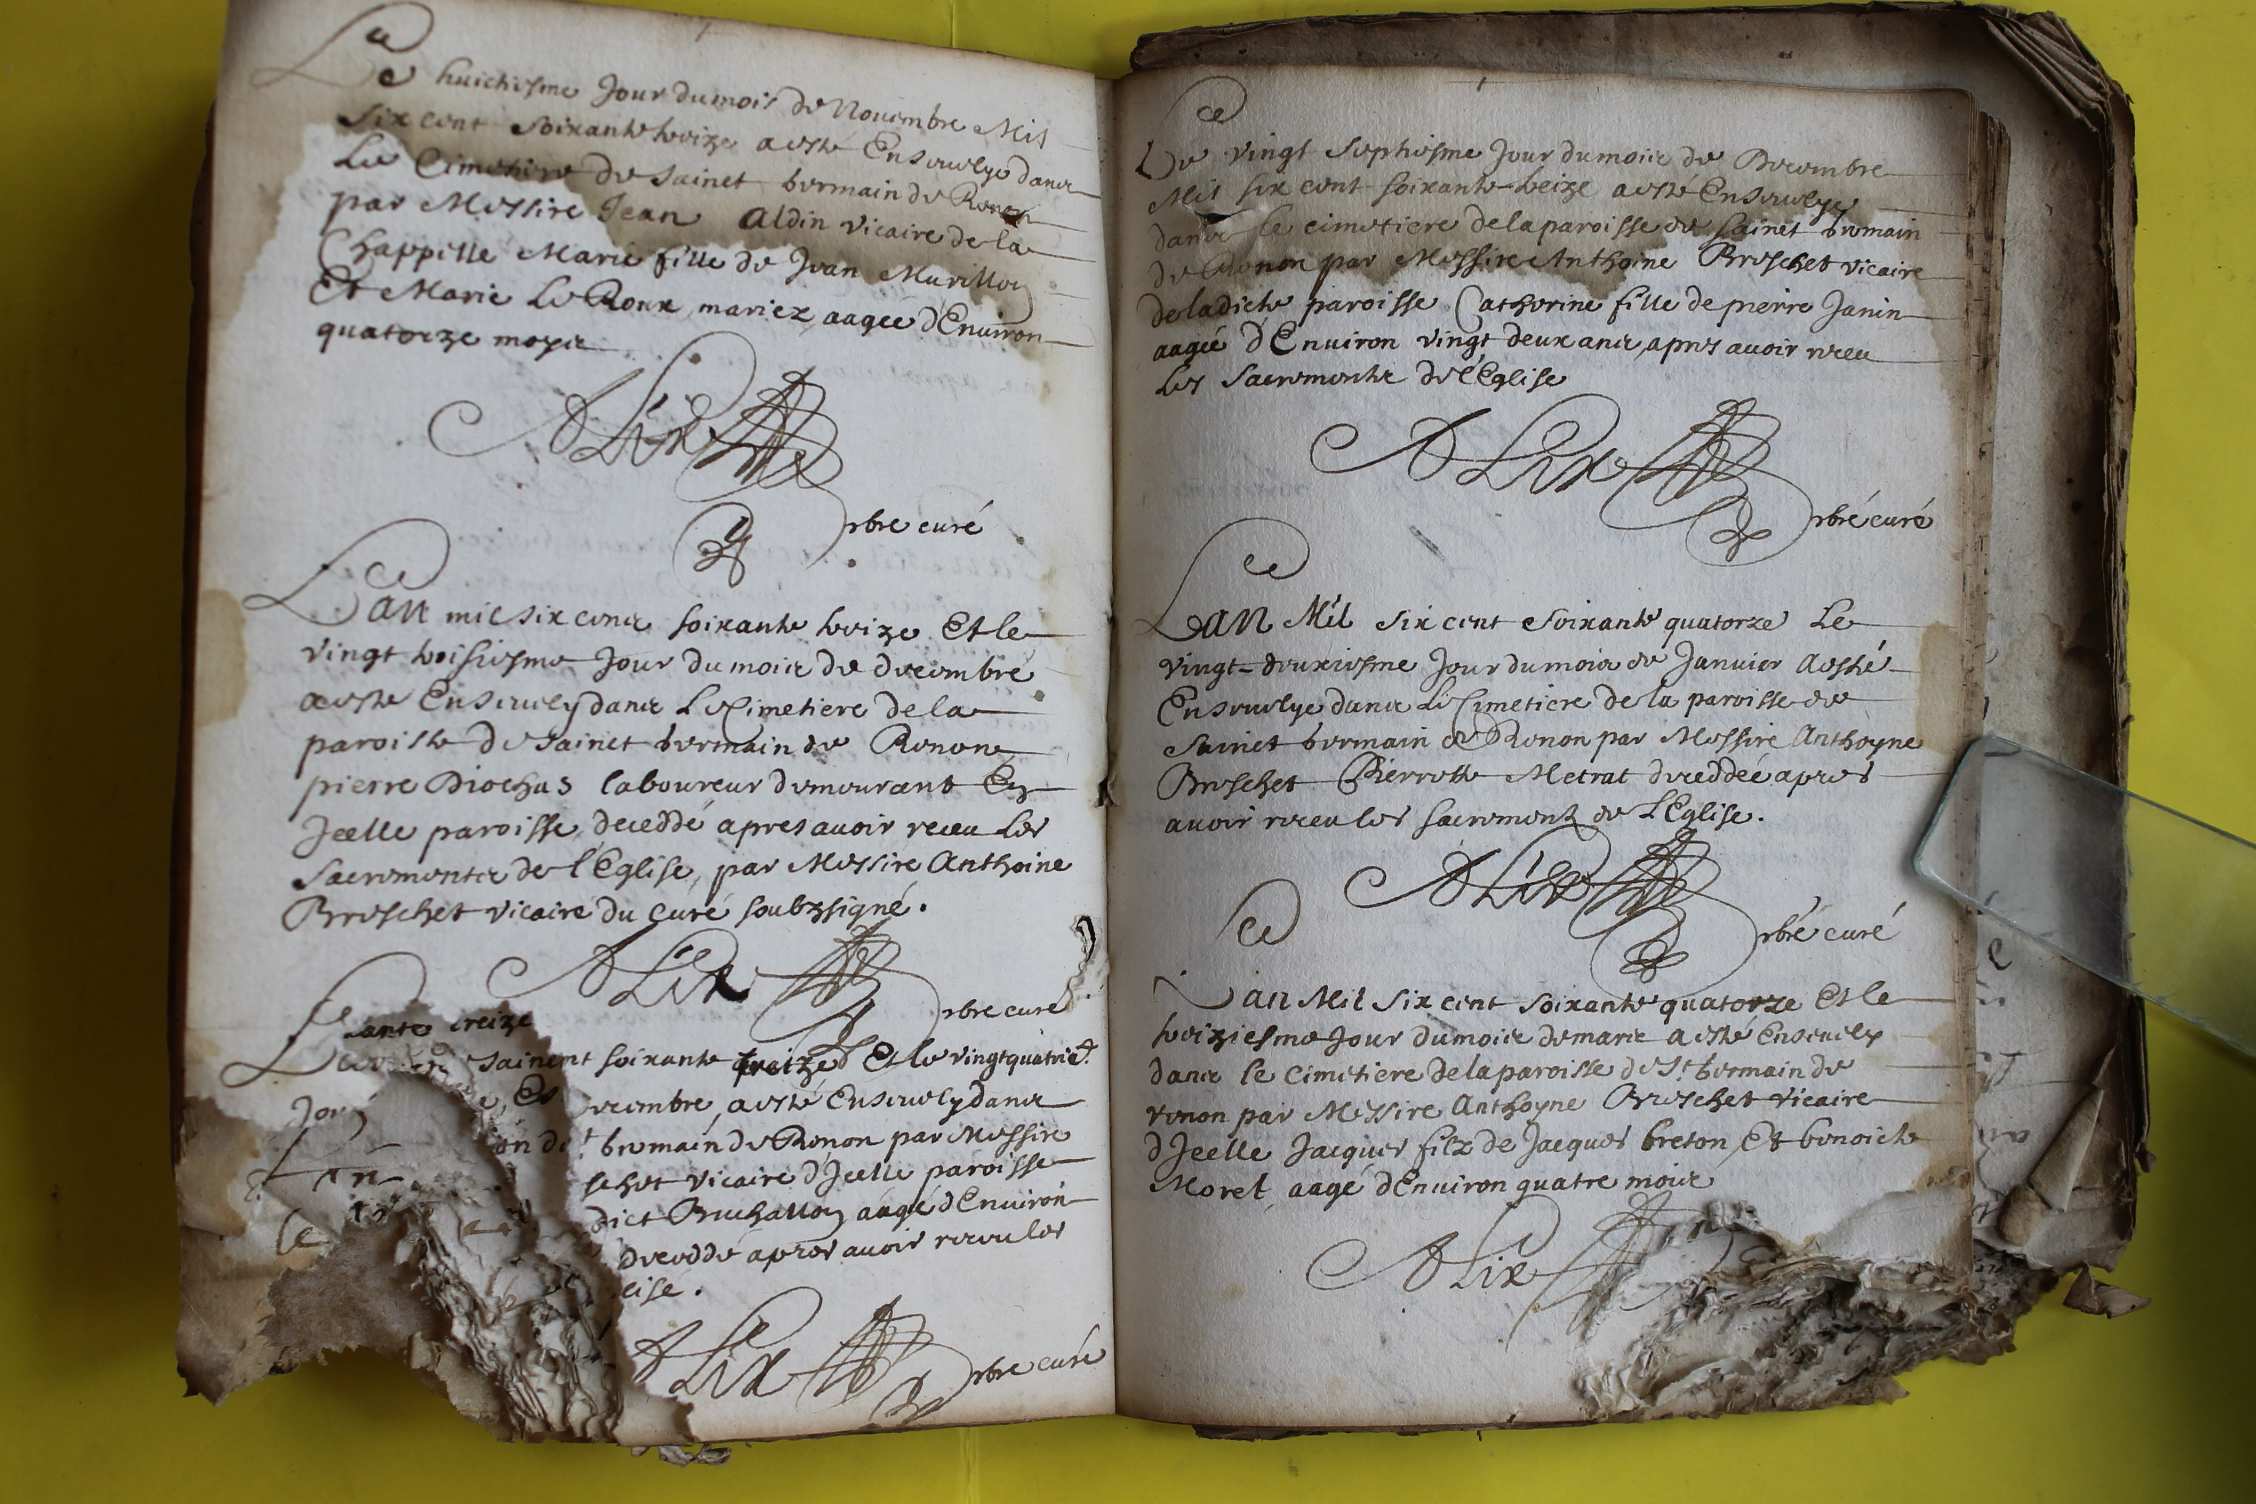 Le huictiesme Jour du mois de Novembre Mil
Six cent soixante treize a esté Ensevelye dans
Le Cimetiere de sainct Germain de Renon
par Messire Jean Aldin vicaire de la
Chappelle Marie fille de Jean Murillon
Et Marie Le Roux mariez, aagée d'Environ
quatorze moys
ALix
prbre curé
Lan mil six cens soixante treize Et le
vingt troisiesme Jour du mois de decembre
a esté Ensevely dans Le Cimetiere de la
paroisse de sainct Germain de Renon
pierre Diochas laboureur demeurant En
Jcelle paroisse, deceddé apres avoir receu Les
Sacrements de l'Eglise, par Messire Anthoine
Breschet vicaire du Curé soubzsigné.
ALix
prbre curé
sante treize
soixante treize Et le vingtquatrie.
Jour decembre, a esté Ensevely dans
Germain de Renon par Messire
schet vicaire d'Jcelle paroisse
dict aagé d'Environ
deceddé apres avoir receu les
lise.
ALix
prbre curé
Le vingt septiesme Jour du mois de Decembre
Mil six cent soixante-treize a esté Ensevelye
dans le cimetiere de la paroisse de sainct Germain
de Renon par Messire Anthoine Breschet vicaire
de ladicte paroisse Catherine fille de pierre Janin
aagée d'Environ vingt deux ans, apres avoir receu
Les Sacremente de l'Eglise
ALix
prbré curé
Lan Mil six cent soixante quatorze Le
vingt-deuxiesme Jour du mois de Janvier a esté
Ensevelye dans Le Cimetiere de la paroisse de
Sainct Germain de Renon par Messire Anthoyne
Breschet Pierrette Metrat deceddée apres
avoir receu les sacrements de L'Eglise.
ALix
prbré curé
Lan Mil six cent soixante quatorze Et le
treiziesme Jour du mois de mars a esté Ensevely
dans le Cimetiere de la paroisse de St Germain de
renon par Messire Anthoyne Breschet vicaire
d'Jcelle Jacques filz de Jacques breton, Et benoicte
Morel, aagé d'Environ quatre mois
ALix